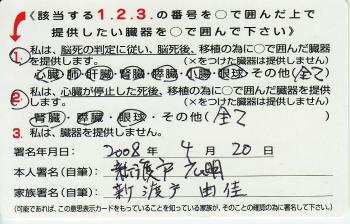 《該当する1.2.3.の番号を○で囲んだ上で
提供したい臓器を○で囲んで下さい》
1. 私は、脳死の判定に従い、脳死後、移植の為に○で囲んだ臓器
を提供します。 (×をつけた臓器は提供しません)
心臓・肺・肝臓・腎臓・膵臓・小腸・眼球・その他(全て)
2. 私は、心臓が停止した死後、移植の為に○で囲んだ臓器
を提供します。 (×をつけた臓器は提供しません)
腎臓・膵臓・眼球・その他(全て)
3. 私は、臓器を提供しません。
署名年月日: 2008年 4月 20日
本人署名(自筆): 新渡戸 広明
家族署名(自筆): 新渡戸 由佳
(可能であれば、この意思表示カードをもっていることを知っている家族が、そのことの確認の為に署名して下さい。)